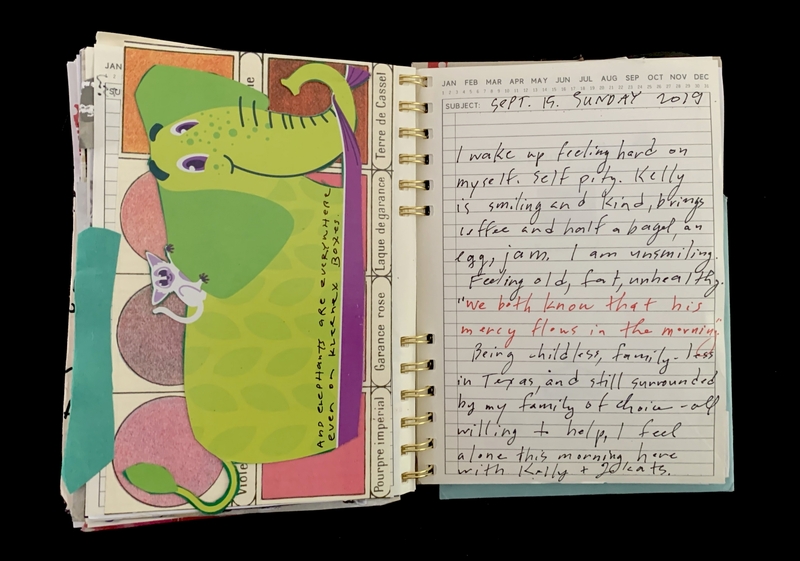 JAN
SU
ne
Terre de Cassel
Laque de garance
Garance rose
Pourpre impérial
Viole
AND ELEPHANTS ARE EVERYWHERE
even on KLEENEX BOXES.
JAN FEB MAR APR MAY JUN JUL AUG SEP OCT NOV DEC
SUBJECT: SEPT. 15. SUNDAY 2019
I wake up feeling hard on
myself. Self pity. Kelly
is smiling and kind, brings
coffee and half a bagel, an
egg, jam. I am unsmiling.
Feeling old, fat, unhealthy.
"We both know that his
mercy flows in the morning"
Being childless, family-less
in Texas, and still surrounded
by my family of choice - all
willing to help, I feel
alone this morning here
with Kelly + cats.